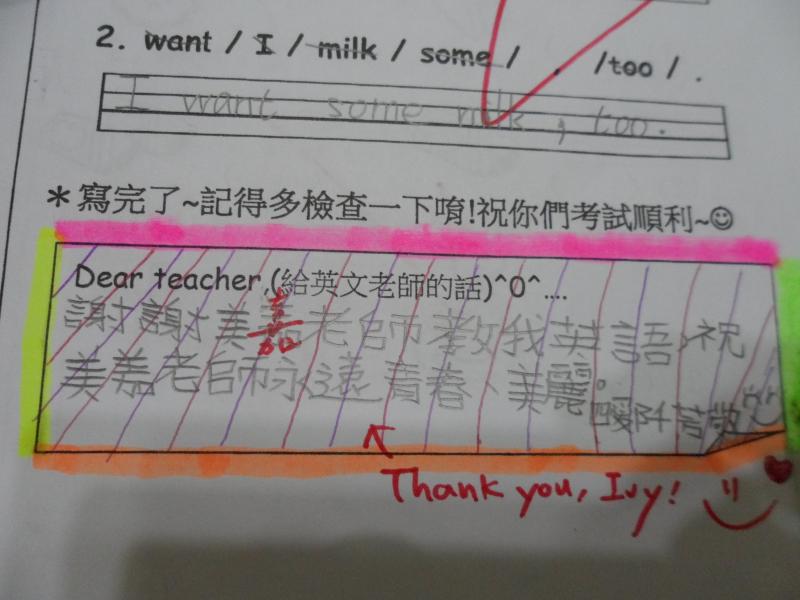 2. want / I / milk / some / , / too / .
I want some milk, too.
＊寫完了~記得多檢查一下唷!祝你們考試順利~☺
Dear teacher,(給英文老師的話)^0^....
謝謝美嘉老師教我英語,祝
嘉
美嘉老師永遠青春、美麗。
Thank you, Ivy!